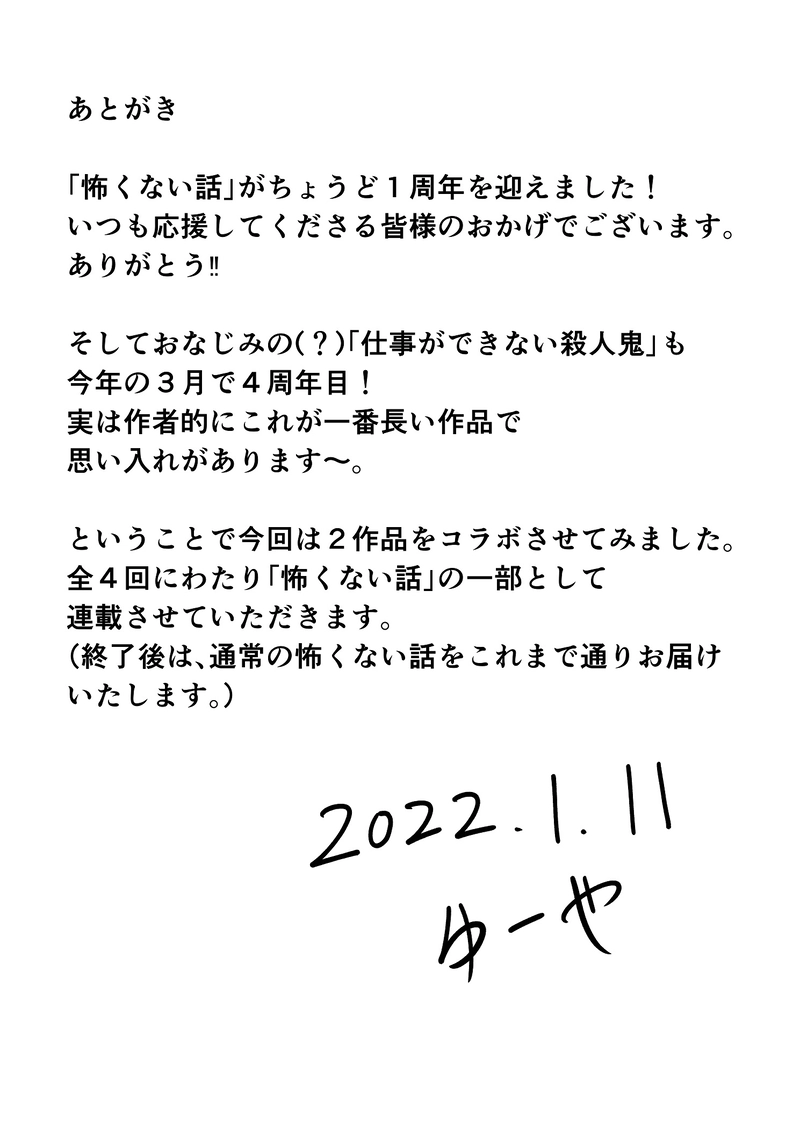 あとがき
「怖くない話」がちょうど１周年を迎えました！
いつも応援してくださる皆様のおかげでございます。
ありがとう!!
そしておなじみの(？)「仕事ができない殺人鬼」も
今年の３月で４周年目！
実は作者的にこれが一番長い作品で
思い入れがあります〜。
ということで今回は２作品をコラボさせてみました。
全４回にわたり「怖くない話」の一部として
連載させていただきます。
(終了後は、通常の怖くない話をこれまで通りお届け
いたします。)
2022.1.11
ゆーや